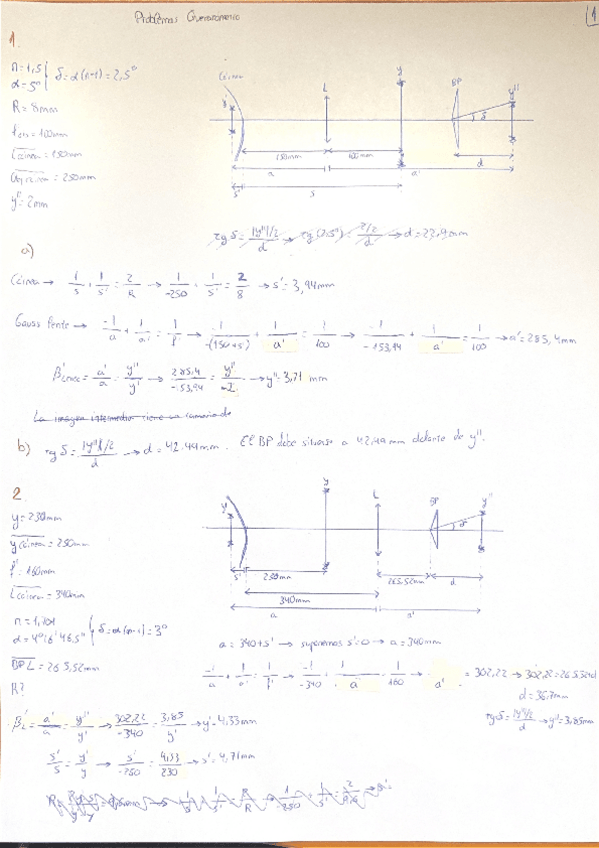 Problemas Queratómetro
1
1.
n = 1,5
α = 5º } δ = α(n-1) = 2,5º
R = 8mm
f' = 100mm
L córnea = 150mm
y córnea = 250mm
y'' = 2mm
Córnea
y'
L
y
BP
y''
δ
150mm
100mm
d
a
a'
s'
s
tg δ = |y''|/2 / d → tg(2,5º) = 2/2 / d → d = 22,9mm
a)
Córnea → 1/s + 1/s' = 2/R → 1/-250 + 1/s' = 2/8 → s' = 3,94mm
Gauss lente → -1/a + 1/a' = 1/f' → -1/-(150+s') + 1/a' = 1/100 → -1/-153,94 + 1/a' = 1/100 → a' = 285,4mm
β' = a'/a = y''/y' → 285,4/-153,94 = y''/-2 → y'' = 3,71 mm
La imagen intermedia tiene un tamaño de
b) tg δ = |y''|/2 / d → d = 42.49mm. El BP debe situarse a 42,49mm delante de y''.
2
y = 230mm
y córnea = 250mm
f' = 160mm
L córnea = 340mm
n = 1,701
α = 4º16'46,5'' } δ = α(n-1) = 3º
BP L = 265,52mm
R?
y'
y
L
BP
y''
s'
250mm
265,52mm
d
340mm
a
a'
a = 340+s' → suponemos s' = 0 → a = 340mm
-1/a + 1/a' = 1/f' → -1/-340 + 1/a' = 1/160 → a' = 302,22 → 302,22 = 265,52+d
d = 36,7mm
tg δ = |y''|/2 / d → y'' = 3,85mm
β'L = a'/a = y''/y' → 302,22/-340 = 3,85/y' → y' = 4,33mm
s'/s = y'/y → s'/-250 = 4,33/230 → s' = 4,71mm